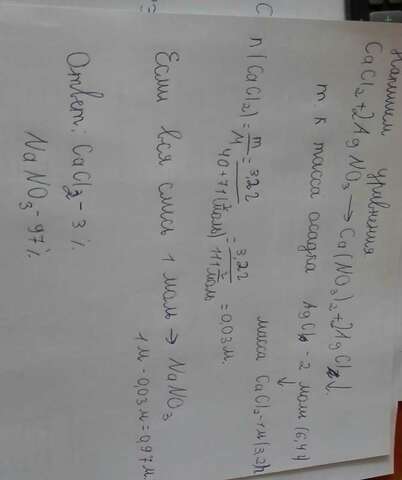 Напишем уравнения
CaCl2+2AgNO3→Ca(NO3)2+2AgCl2↓.
т. к масса осадка AgCl2-2 моль (6,4г)
масса CaCl2-1м(3,2г)
n(CaCl2)=m/M=3,2г/40+71(г/моль)=3,2г/111г/моль=0,03м.
Если вся смесь 1 моль→NaNO3
1м-0,03м=0,97м.
Ответ: CaCl2-3%
NaNO3-97%